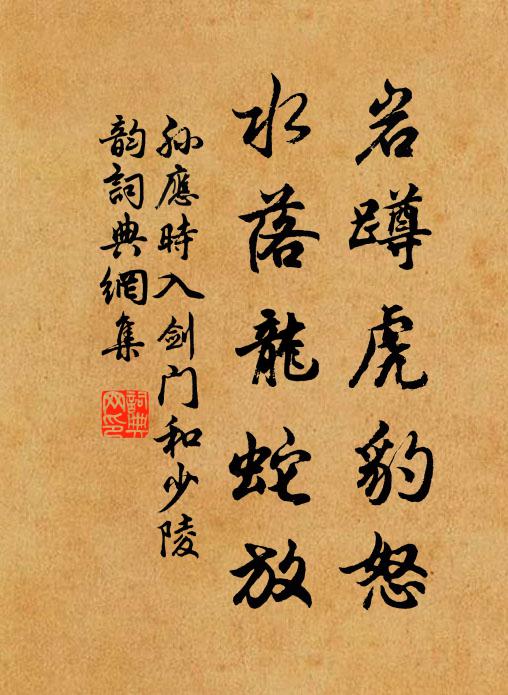 岩蹲虎豹怒
水落龍蛇放
孙應時入剑门和少陵
韵詞典網集
詞典网印